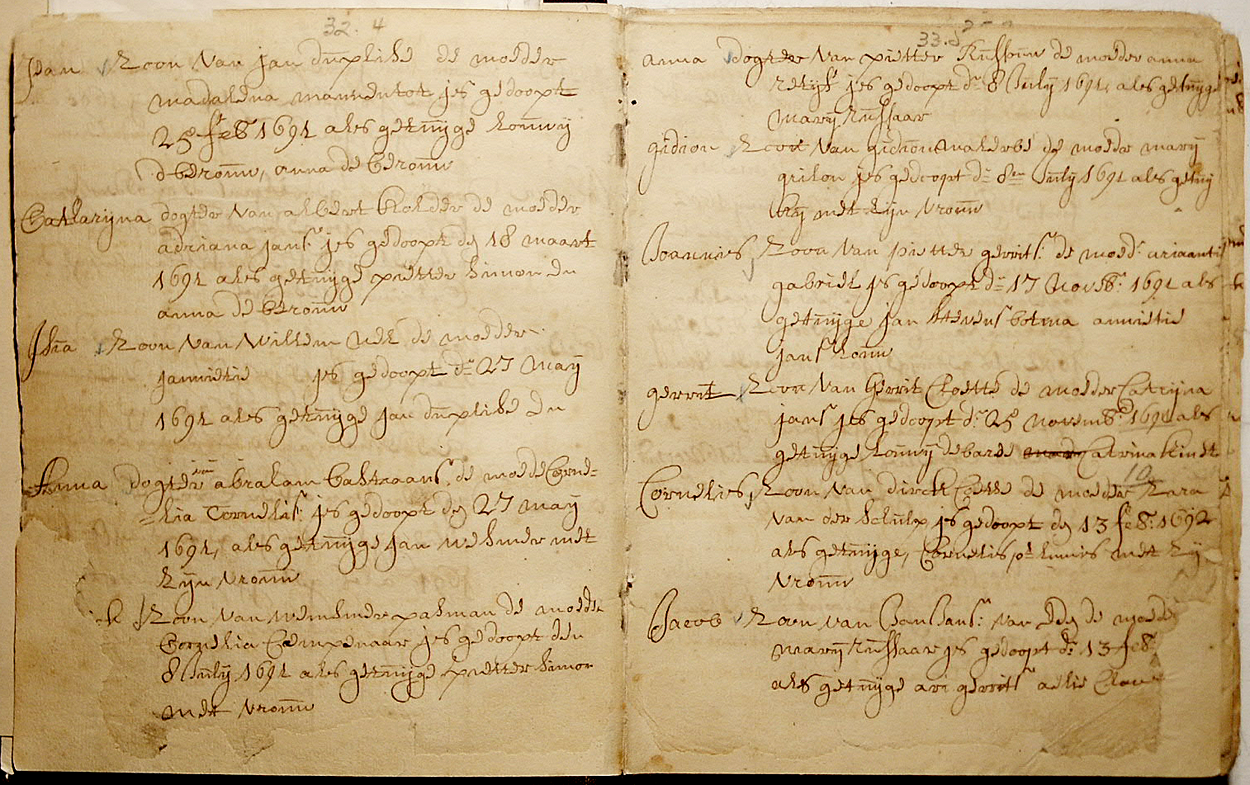 32. 4
Jean Zoon Van Jan duplike de moeder
madalena mannentot jes gedoopt
25 feb 1691 ales getuijge Louwij
d beroun, anna de beroun
Catharijna dogter Van albert Kolder de moeder
adriana Jans jes gedoopt den 18 maart
1691 ales getuijge pietter Simon En
anna de beroun
Zoon Van Willem Nel de moeder
Jannietie jes gedoopt dn 27 Maij
1691 ales getuijge Jan duplike En
Anna dogter van abraham bastiaans de moeder Corne-
-lia Cornelis jes gedoopt den 27 Maij
1691, ales getuijge Jan met
Zijn Vrouw
k Zoon Van de moeder
Cornelia jes gedoopt den
8 Julij 1691 ales getuijge pietter Simon
met Vrouw
33.5
anna dogter Van pietter Russouw de moeder anna
Retijf jes gedoopt dn 8 Julij 1691, ales getuijge
Marij Russaar
gidion Zoon Van gidion Malerbe de moeder Marij
grilon jes gedoopt dn 8en Julij 1691 ales getuij
met Zijn Vrouw
Joannies Zoon Van Pietter gerrits de moed ariaantie
gabriel jes gedoopt dn 17 Novb 1691 als
getuijge Jan Stevens botma annietie
Jans Louw
gerrit Zoon Van Gerrit Cloette de moeder Catrijna
Jans jes gedoopt dn 25 Novemb 1691 als
getuijge Louwij de barae Catrina
10
Cornelies Zoon Van dirck Coette de moeder Zara
Van der Schulp jes gedoopt den 13 feb 1692
als getuijge, Cornelis met Zij
Vrouw
Jacob Zoon Van Jan Jans Van Eden de moede
Marij Russaar jes gedoopt dn 13 feb
als getuijge ari gerrits